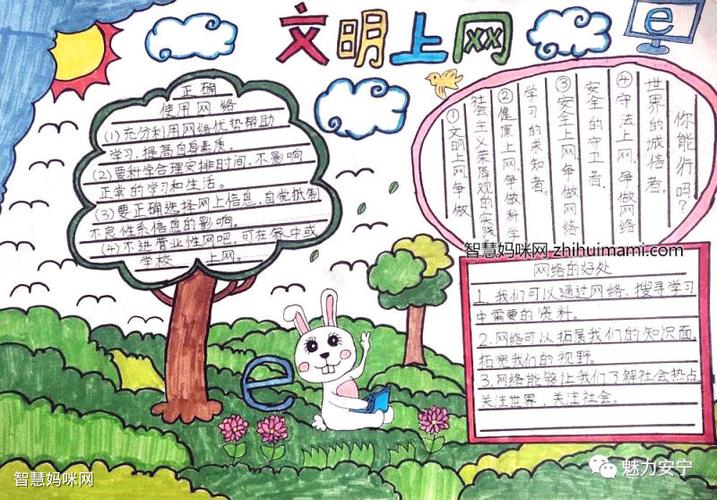 文明上网
e
正确
使用网络
(1)充分利用网络优势帮助
学习,提高自身素质。
(2)要科学合理安排时间,不影响
正常的学习和生活。
(3)要正确选择网上信息,自觉抵制
不良性系信息的影响
(4)不进营业性网吧,可在家中或
学校 上网。
①文明上网,争做
社会主义荣辱观的实践
②健康上网,争做科学
学习的求知者
③安全上网,争做网络
安全的守卫者。
④守法上网,争做网络
世界的诚信者。
你能行吗?
智慧妈咪网 zhihuimami.com
网络的好处
1.我们可以通过网络,搜寻学习
中需要的资料。
2.网络可以拓展我们的知识面,
拓宽我们的视野。
3.网络能够让我们了解社会热点
关注世界,关注社会。
e
智慧妈咪网
魅力安宁